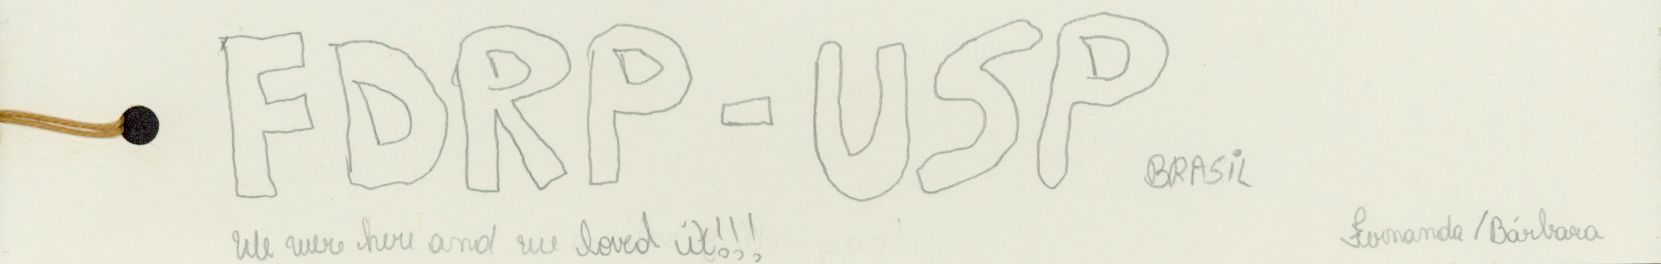 FDRP - USP
BRASIL
We were here and we loved it!!!
Fernanda / Bárbara